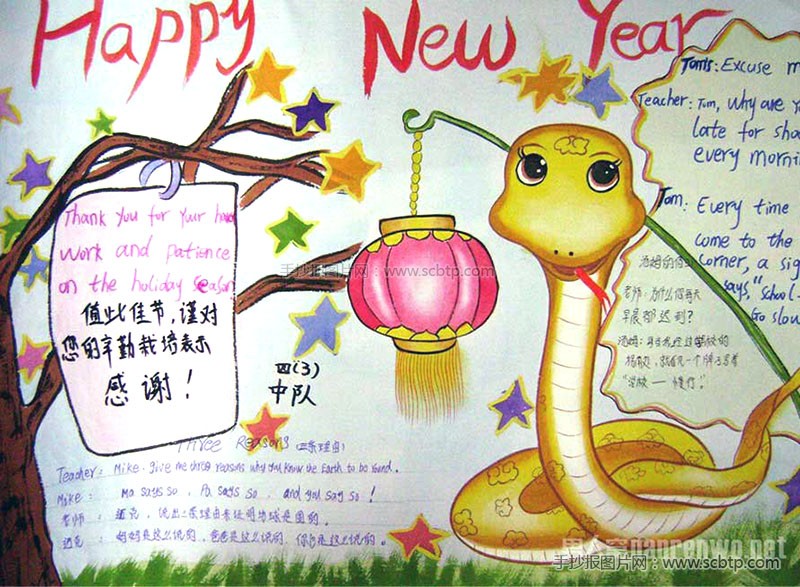 Happy New Year
Thank you for your hard
work and patience
on the holiday season
值此佳节,谨对
您的辛勤栽培表示
感谢!
四(3)
中队
Tom: Excuse m
Teacher: Tom, why are yo
late for sha
every mornin
Tom: Every time
come to the
corner, a sig
says, "School-
Go slow
汤姆的借口
老师:为什么你每天
早晨都迟到?
汤姆:每当我经过学校的
拐角处,就看见一个牌子写着
"学校——慢行!"
手抄报图片网:www.scbtp.com
Three Reasons (三条理由)
Teacher: Mike, give me three reasons why you know the Earth to be round.
Mike: Ma says so, Pa says so, and you say so!
老师:迈克,说出三条理由来证明地球是圆的。
迈克:妈妈是这么说的,爸爸是这么说的,你也是这么说的。
nanrenwo.net
手抄报图片网:www.scbtp.com